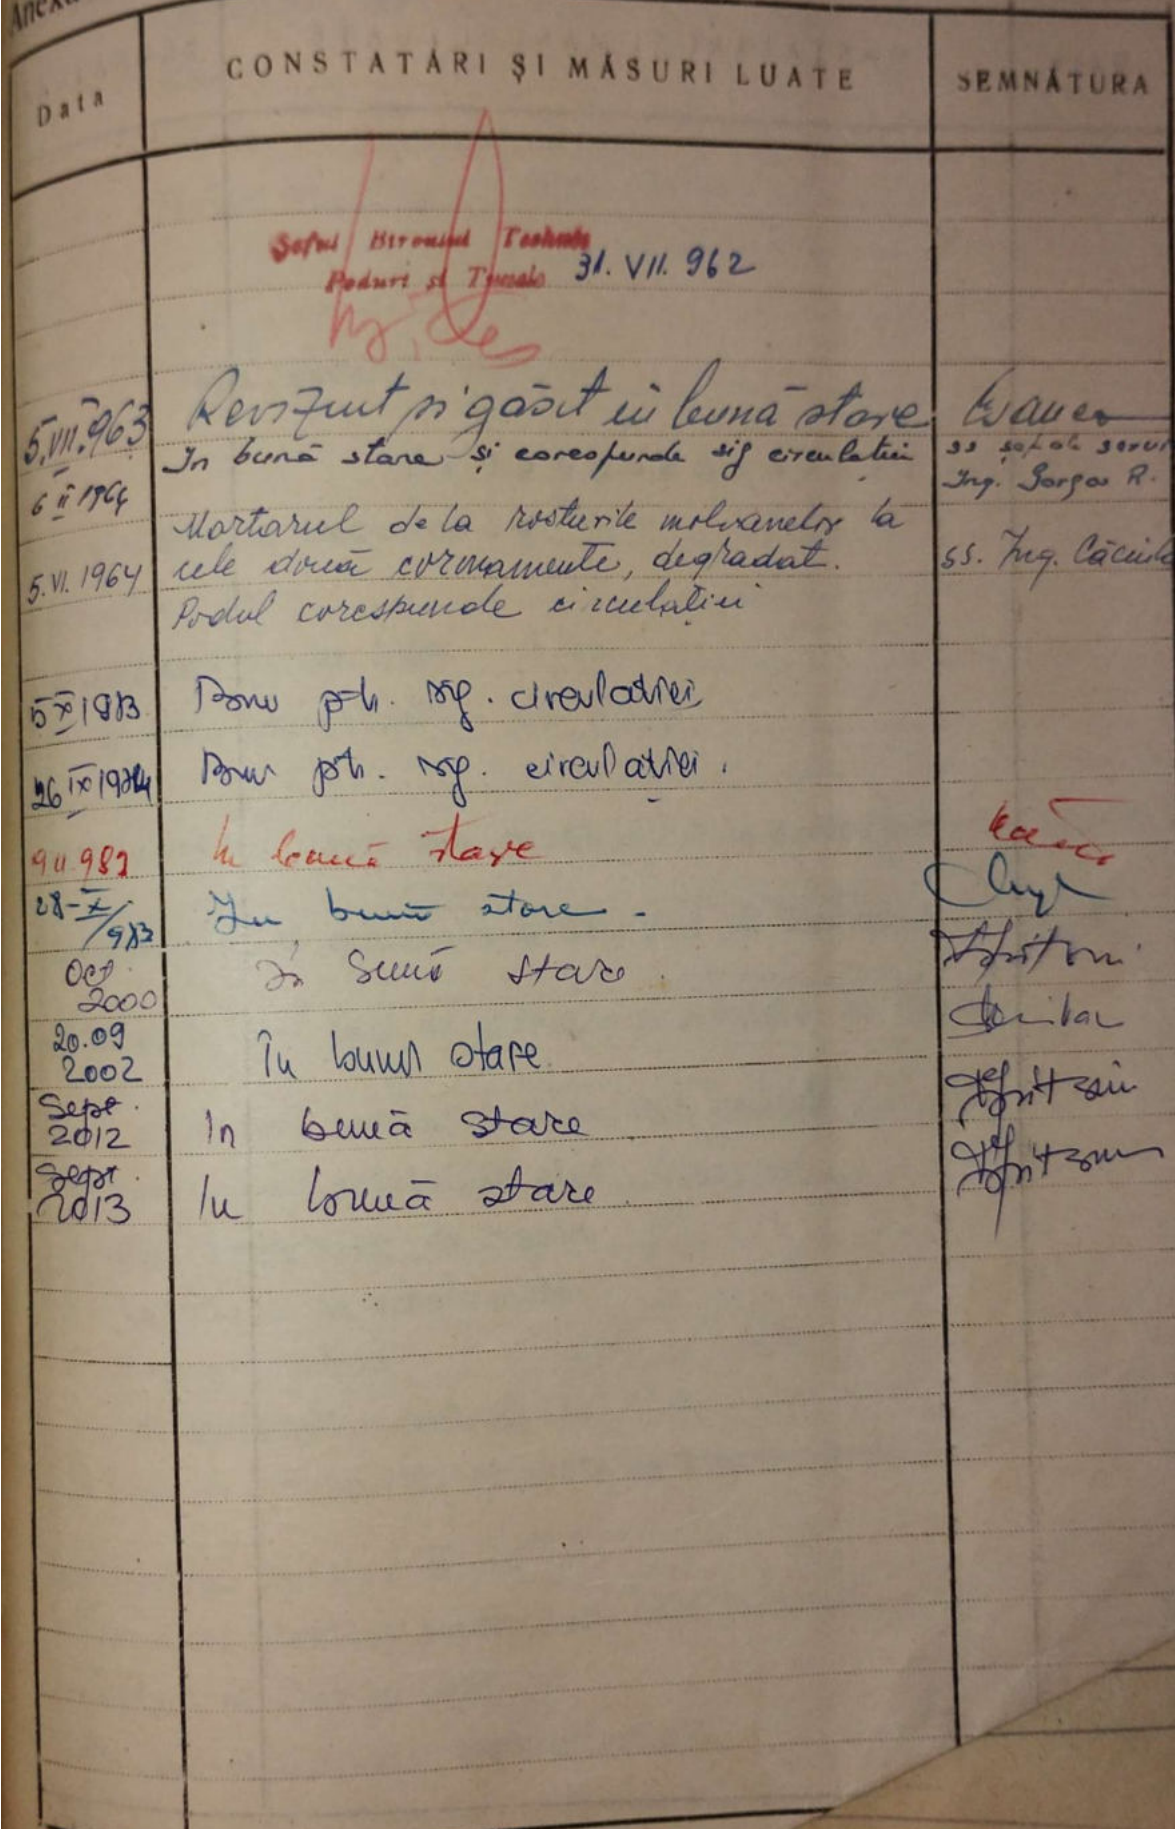 Data CONSTATĂRI ȘI MĂSURI LUATE SEMNĂTURA
Șeful Biroului Technic
Poduri și Tunele 31. VII. 962
5.VII.963 Revizuit și găsit în bună stare
In bună stare și corespunde sig circulației
6 II 1964 Ing. R.
Mortarul de la rosturile moloanelor la
5.VI. 1964 cele două coronamente, degradat. ss. Ing.
Podul corespunde circulației
5 XI 1973 Bun ptr. sig. circulației
26 IX 1974 Bun ptr. sig. circulației.
In bună stare
28-X/983 In bună stare -
Oct. 2000 In bună stare.
20.09 2002 În bună stare.
Sept. 2012 In bună stare
Sept. 2013 In bună stare.